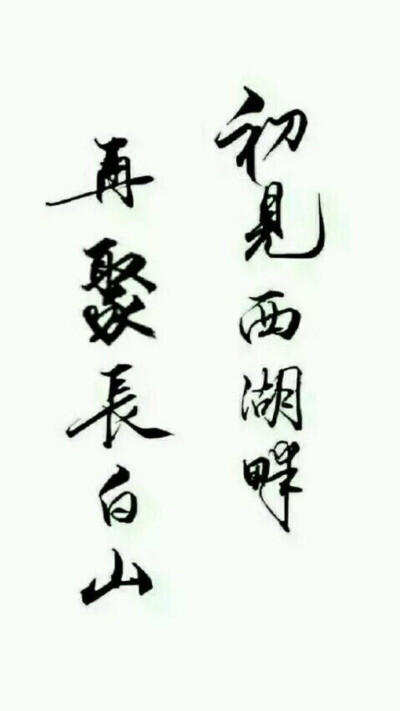 初見西湖畔
再聚長白山